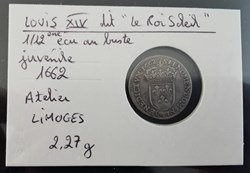 LOUIS XIV dit "Le Roi Soleil"
1/12ème écu au buste
juvénile
1662
Atelier
LIMOGES
2.27g